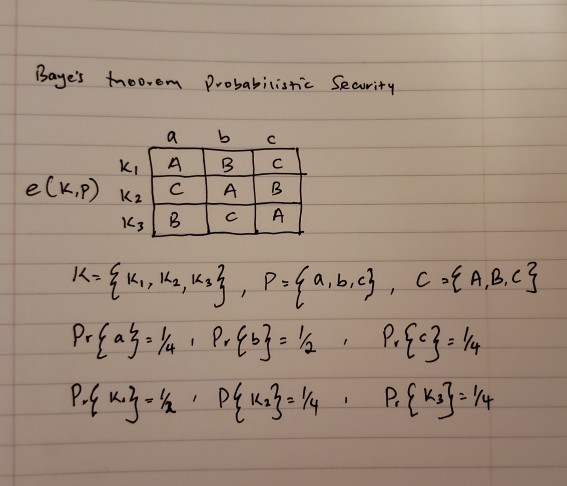 Baye's theorem Probabilistic Security
a b c
K₁ A B C
e(K,P) K₂ C A B
K₃ B C A
K = {K₁, K₂, K₃}, P = {a, b, c}, C = {A, B, C}
Pr{a} = 1/4, Pr{b} = 1/2, Pr{c} = 1/4
Pr{K₁} = 1/2, P{K₂} = 1/4, Pr{K₃} = 1/4